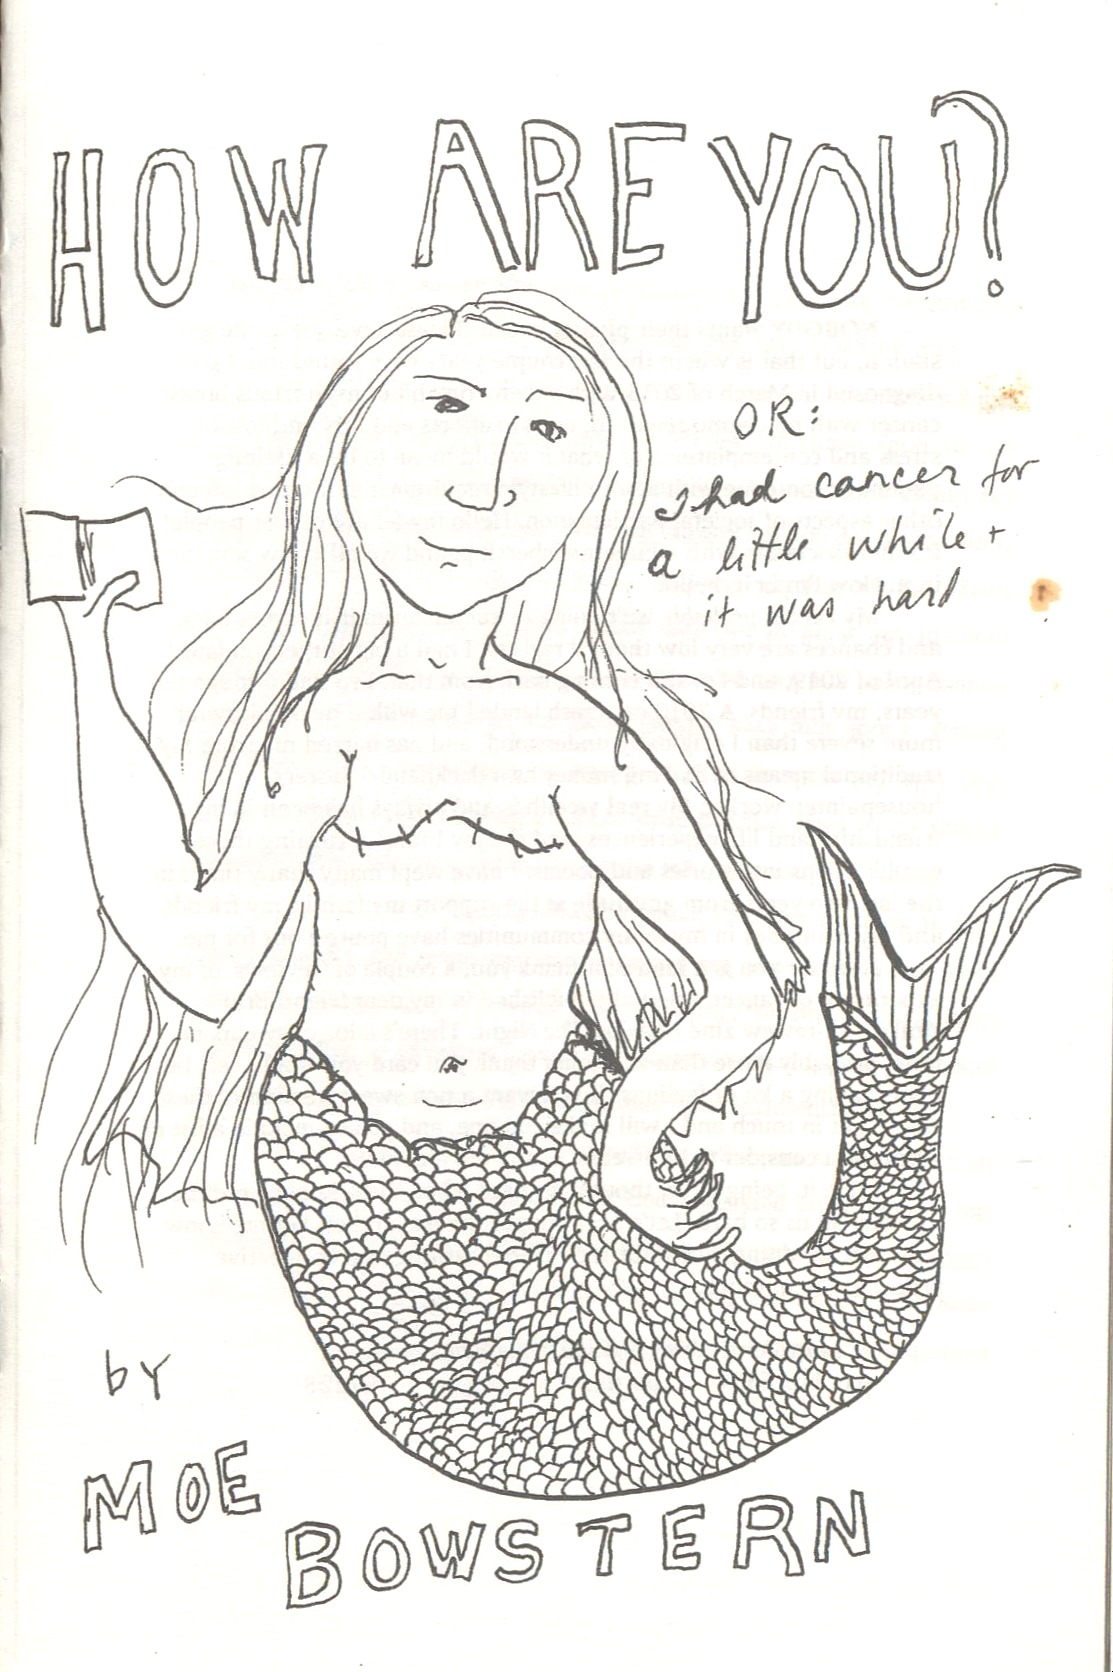 HOW ARE YOU?
OR:
I had cancer for
a little while +
it was hard
by
MOE
BOWSTERN